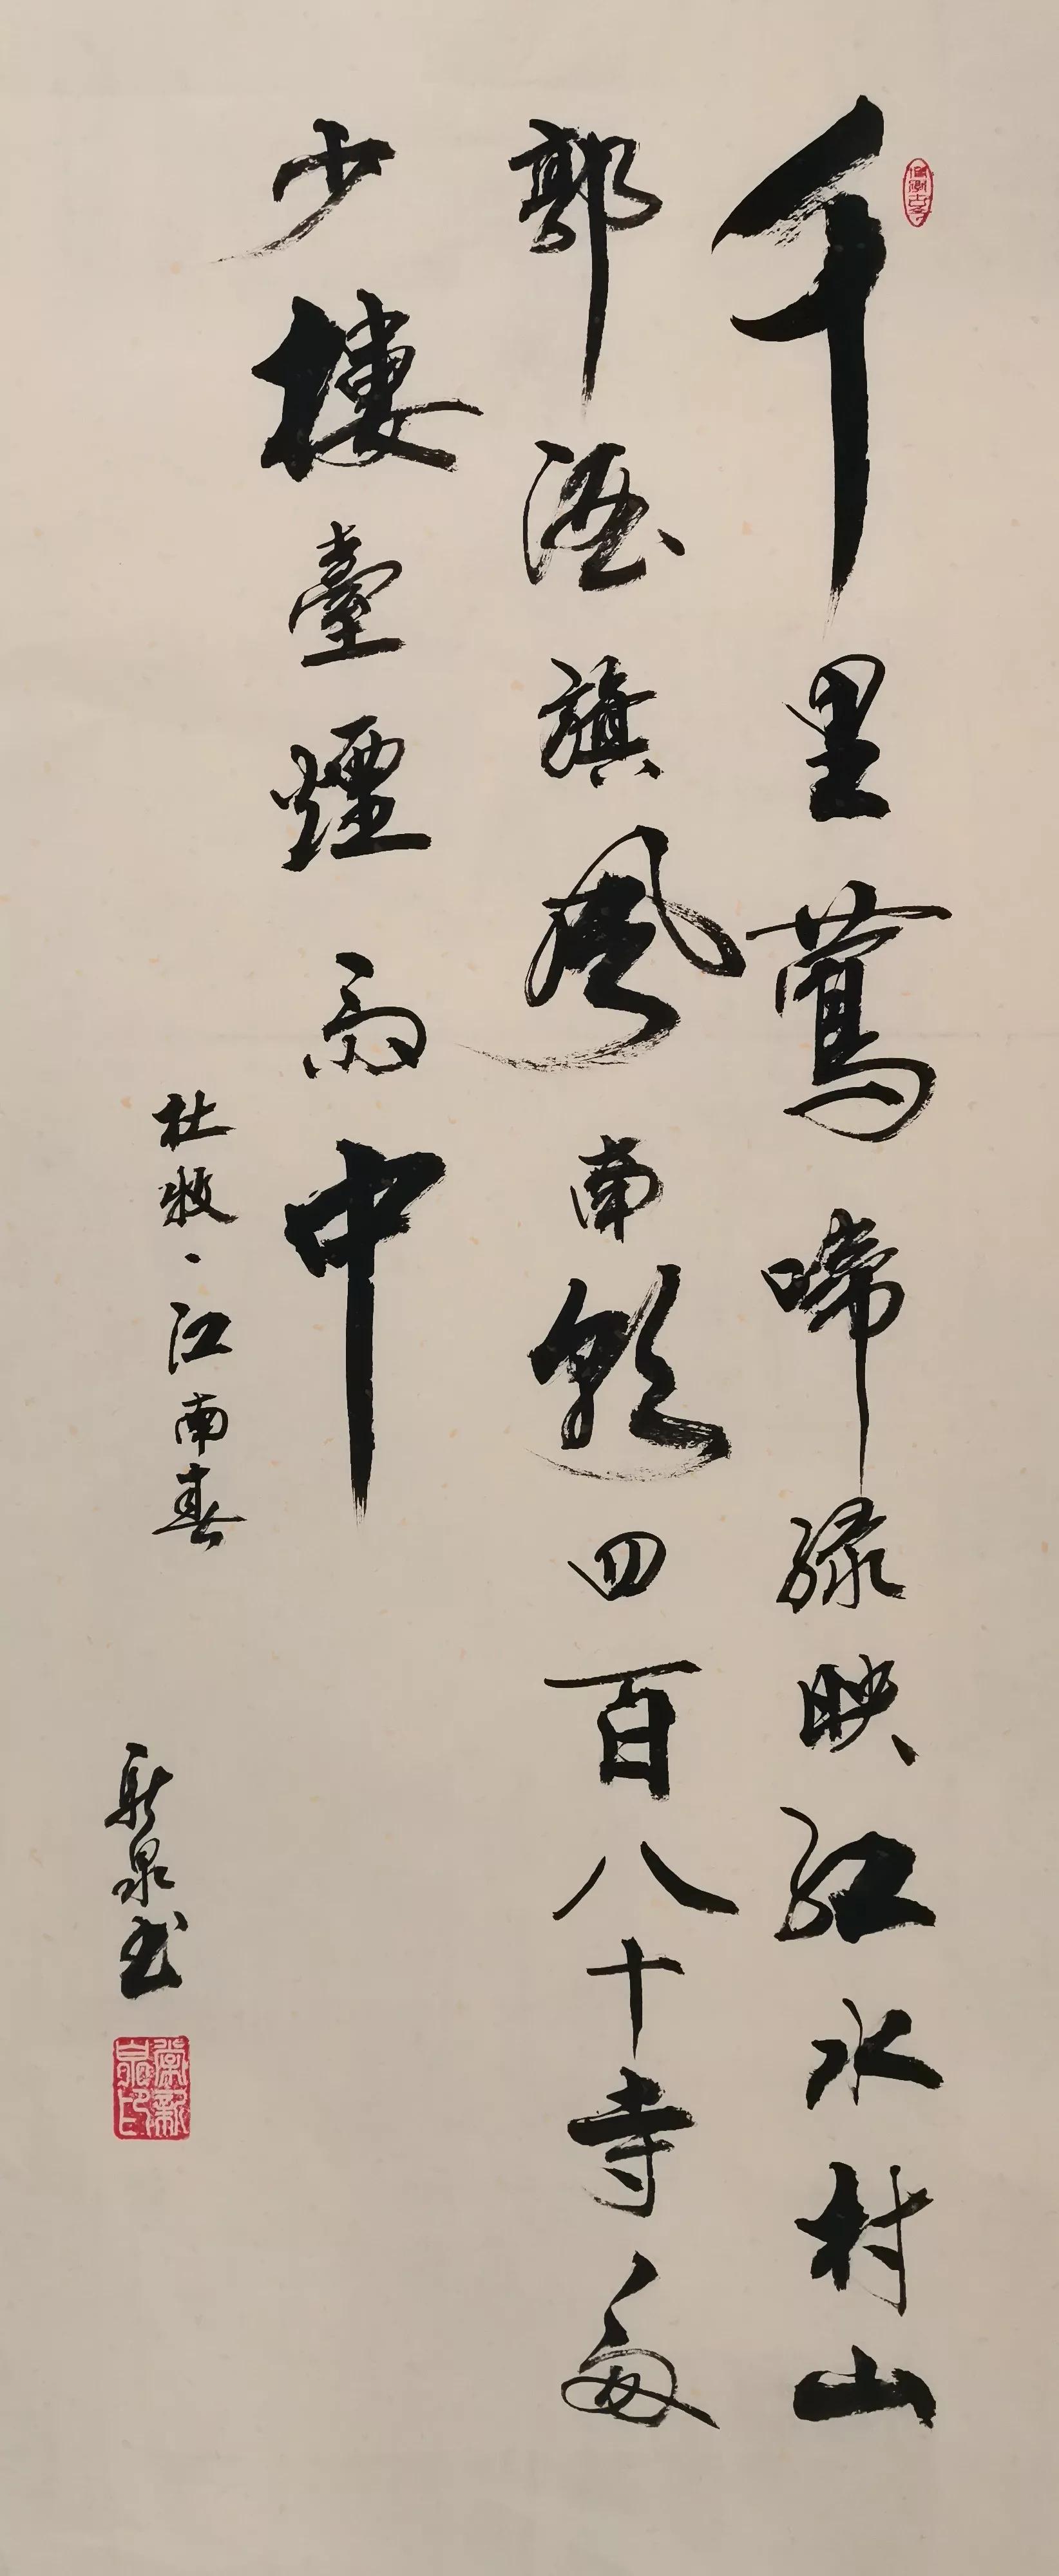 千里鶯啼綠映紅水村山
郭酒旗風南朝四百八十寺多
少樓臺煙雨中
杜牧·江南春
新泉书